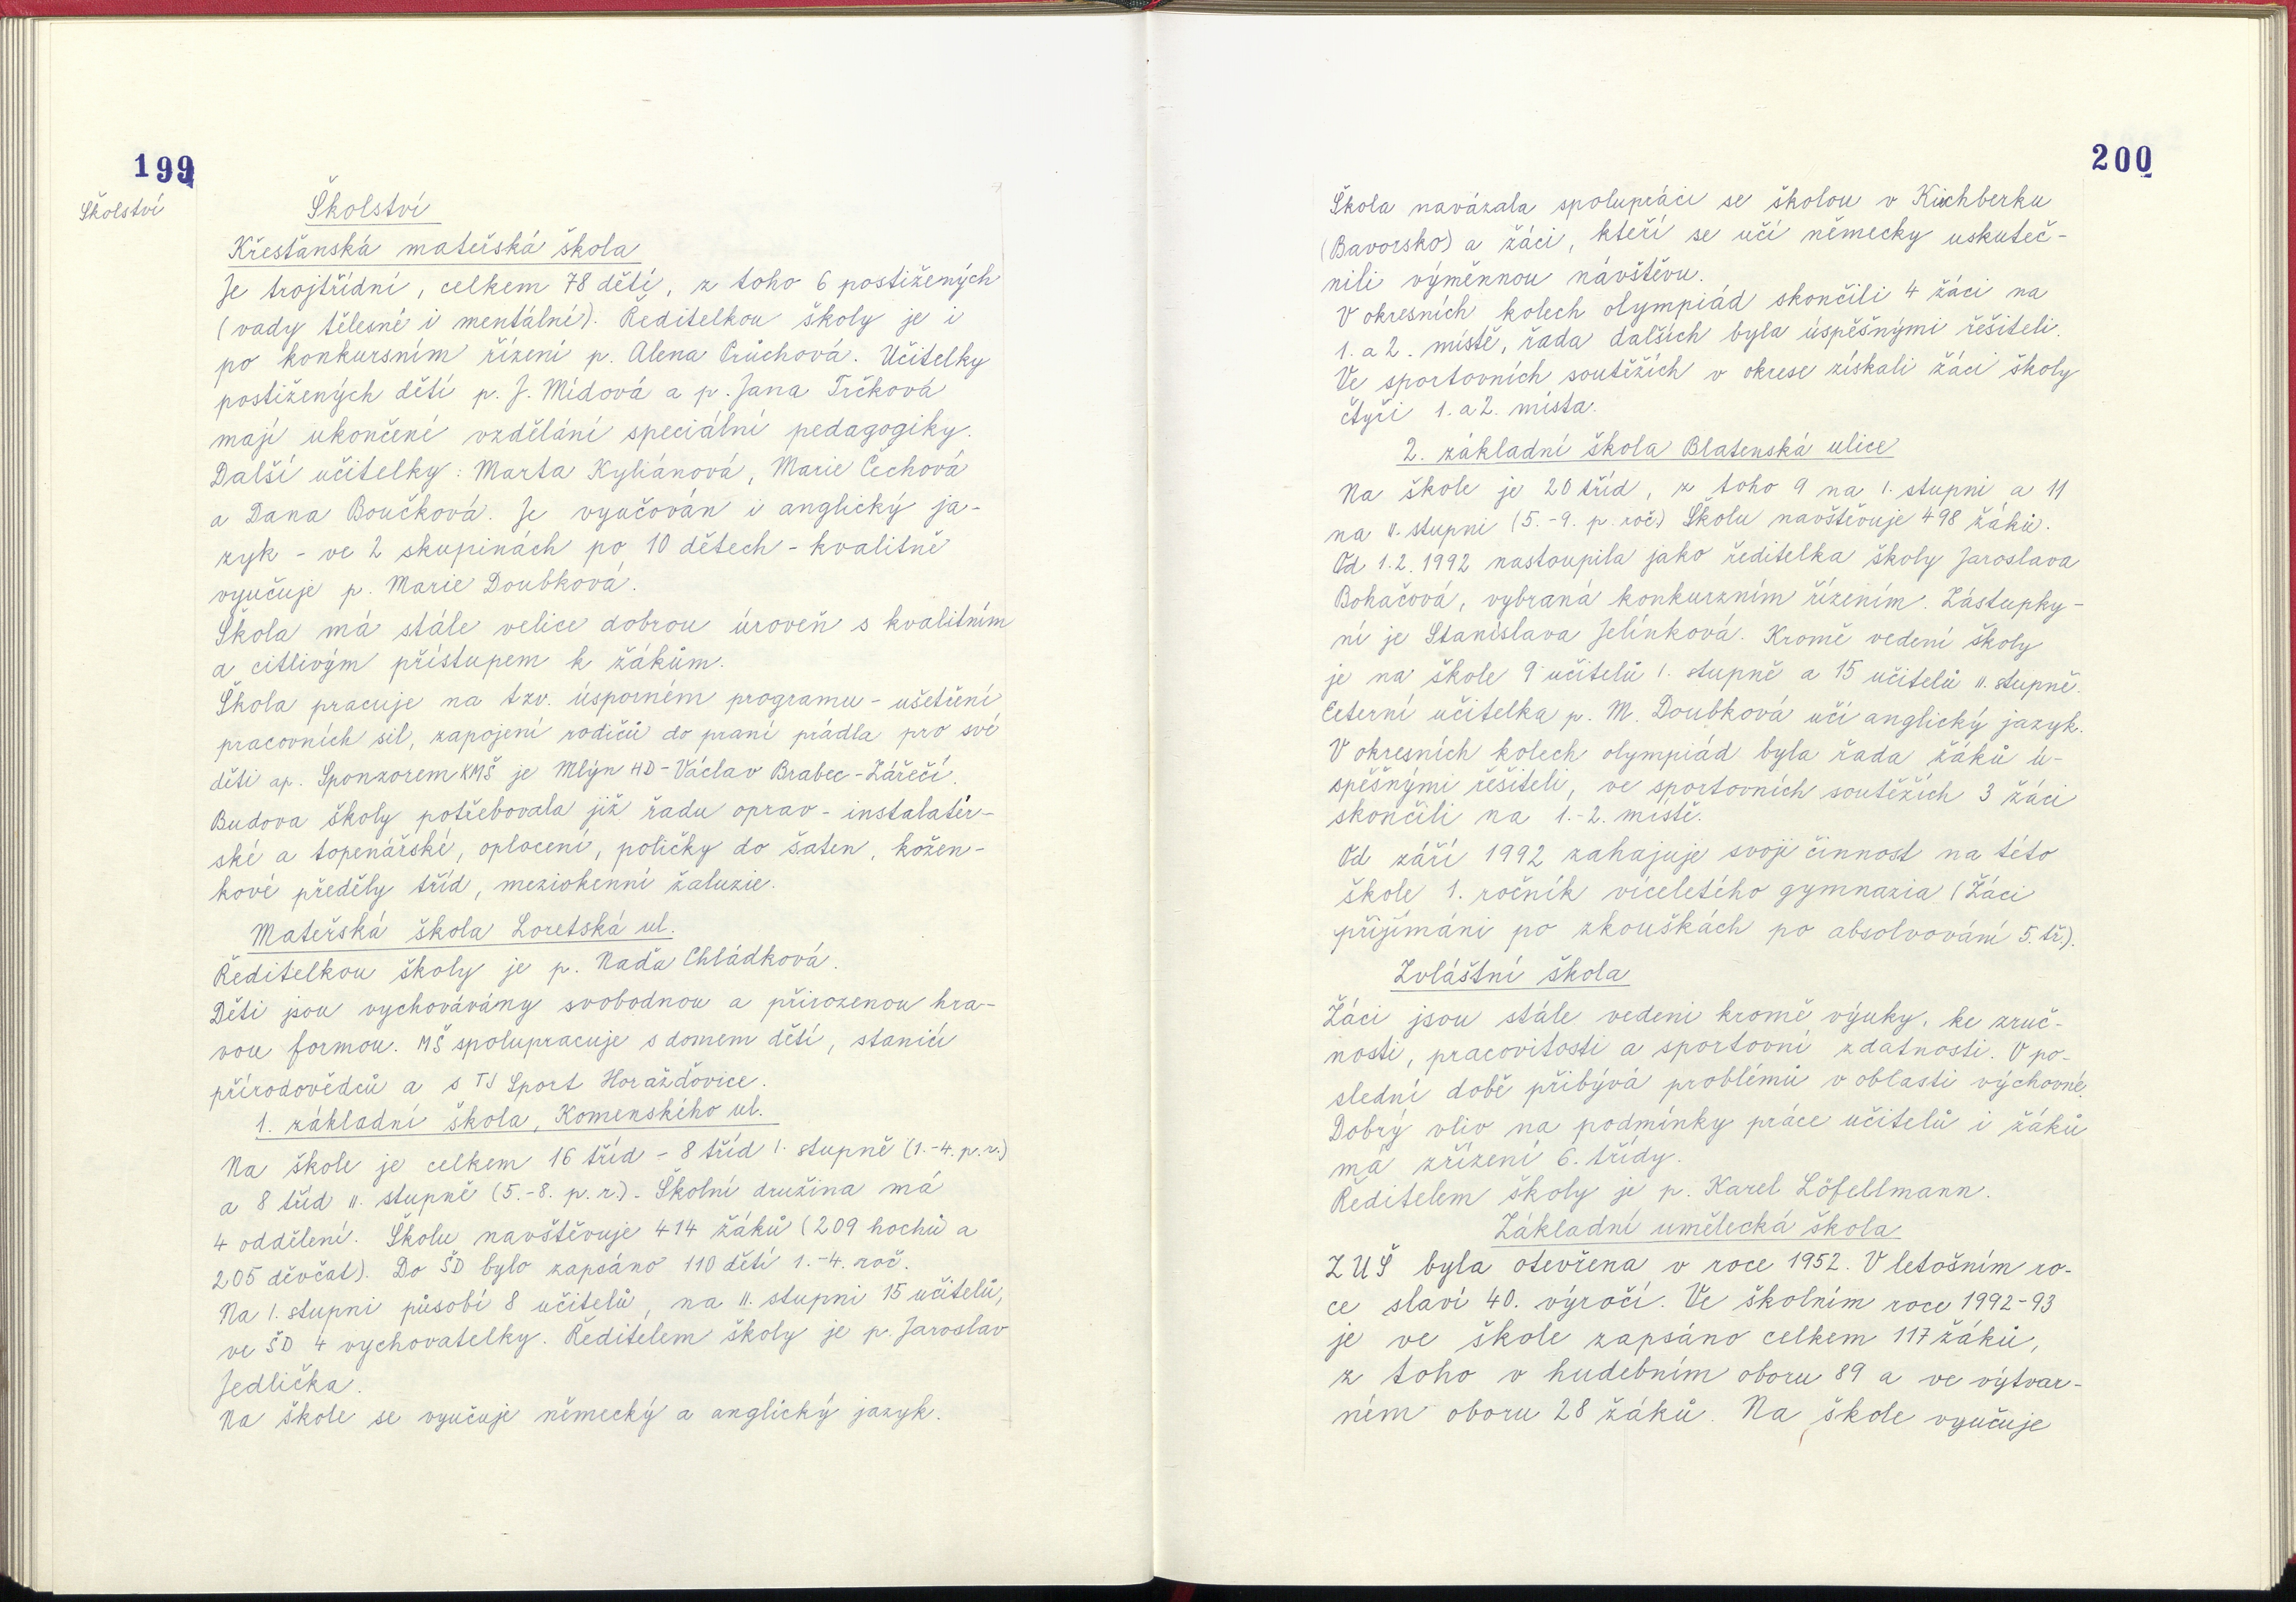 199
Školství
Školství
Křesťanská mateřská škola
Je trojtřídní, celkem 78 dětí, z toho 6 postižených
(vady tělesné i mentální). Ředitelkou školy je i
po konkursním řízení p. Alena Průchová. Učitelky
postižených dětí p. J. Mídová a p. Jana Trčková
mají ukončené vzdělání speciální pedagogiky.
Další učitelky: Marta Kyliánová, Marie Čechová
a Dana Boučková. Je vyučován i anglický ja-
zyk - ve 2 skupinách po 10 dětech - kvalitně
vyučuje p. Marie Doubková.
Škola má stále velice dobrou úroveň s kvalitním
a citlivým přístupem k žákům.
Škola pracuje na tzv. úsporném programu - ušetření
pracovních sil, zapojení rodičů do praní prádla pro své
děti ap. Sponzorem KMŠ je Mlýn HD - Václav Brabec - Zářečí.
Budova školy potřebovala již řadu oprav - instalatér-
ské a topenářské, oplocení, poličky do šaten, kožen-
kové předěly tříd, meziokenní žaluzie.
Mateřská škola Loretská ul.
Ředitelkou školy je p. Naďa Chládková.
Děti jsou vychovávány svobodnou a přirozenou hra-
vou formou. MŠ spolupracuje s domem dětí, stanicí
přírodovědců a s TJ Sport Horažďovice.
1. základní škola, Komenského ul.
Na škole je celkem 16 tříd - 8 tříd I. stupně (1.-4. p.r.)
a 8 tříd II. stupně (5.-8. p.r.). Školní družina má
4 oddělení. Školu navštěvuje 414 žáků (209 hochů a
205 děvčat). Do ŠD bylo zapsáno 110 dětí 1.-4. roč.
Na I. stupni působí 8 učitelů, na II. stupni 15 učitelů,
ve ŠD 4 vychovatelky. Ředitelem školy je p. Jaroslav
Jedlička.
Na škole se vyučuje německý a anglický jazyk.
200
Škola navázala spolupráci se školou v Kirchberku
(Bavorsko) a žáci, kteří se učí německy uskuteč-
nili výměnnou návštěvu.
V okresních kolech olympiád skončili 4 žáci na
1. a 2. místě, řada dalších byla úspěšnými řešiteli.
Ve sportovních soutěžích v okrese získali žáci školy
čtyři 1. a 2. místa.
2. základní škola Blatenská ulice
Na škole je 20 tříd, z toho 9 na I. stupni a 11
na II. stupni (5.-9. p. roč.) Školu navštěvuje 498 žáků.
Od 1.2.1992 nastoupila jako ředitelka školy Jaroslava
Boháčová, vybraná konkurzním řízením. Zástupky-
ní je Stanislava Jelínková. Kromě vedení školy
je na škole 9 učitelů I. stupně a 15 učitelů II. stupně.
Externí učitelka p. M. Doubková učí anglický jazyk.
V okresních kolech olympiád byla řada žáků ú-
spěšnými řešiteli, ve sportovních soutěžích 3 žáci
skončili na 1.-2. místě.
Od září 1992 zahajuje svoji činnost na této
škole 1. ročník víceletého gymnazia (Žáci
přijímáni po zkouškách po absolvování 5. tř.).
Zvláštní škola
Žáci jsou stále vedeni kromě výuky, ke zruč-
nosti, pracovitosti a sportovní zdatnosti. V po-
slední době přibývá problémů v oblasti výchovné.
Dobrý vliv na podmínky práce učitelů i žáků
má zřízení 6. třídy.
Ředitelem školy je p. Karel Löfellmann.
Základní umělecká škola
ZUŠ byla otevřena v roce 1952. V letošním ro-
ce slaví 40. výročí. Ve školním roce 1992-93
je ve škole zapsáno celkem 117 žáků,
z toho v hudebním oboru 89 a ve výtvar-
ném oboru 28 žáků. Na škole vyučuje